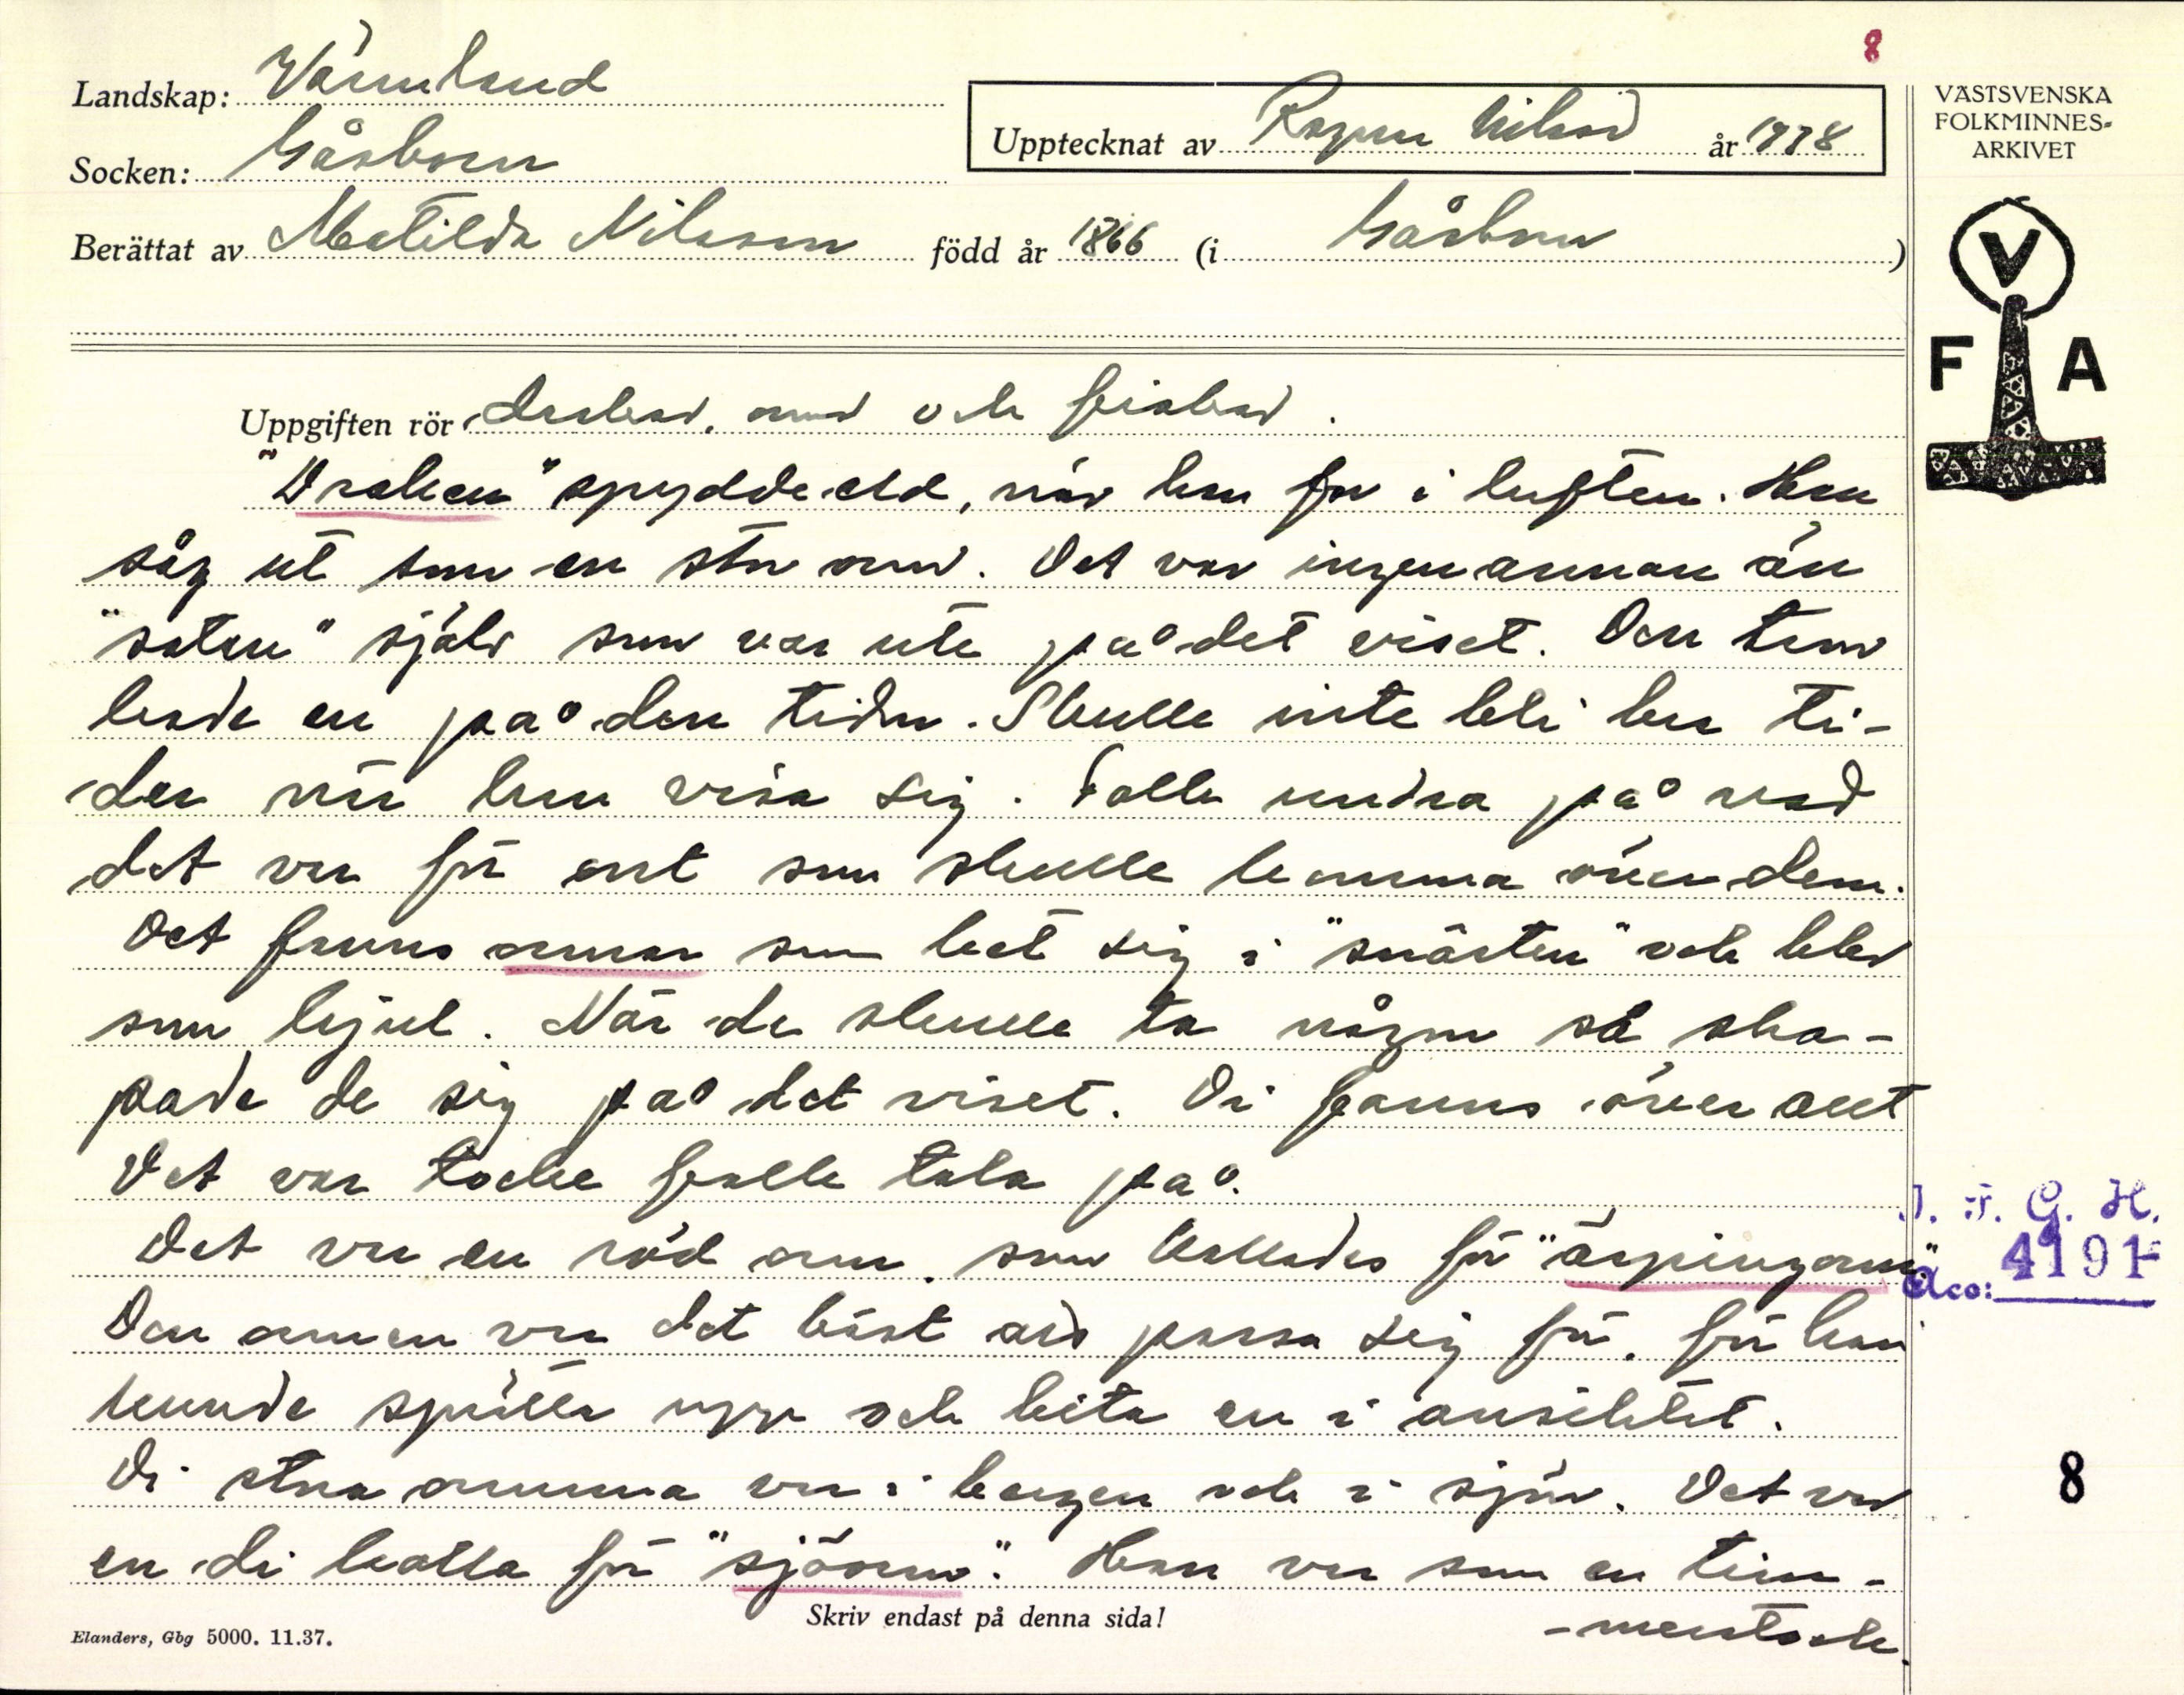 8
Landskap: Värmland
Socken: Gåsborn
Upptecknat av Ragnar Nilsson år 1938
Berättat av Matilda Nilsson född år 1866 (i Gåsborn)
VÄSTSVENSKA
FOLKMINNES-
ARKIVET
V
F A
Uppgiften rör draken, orm och fisken.
"Draken" spydde eld, när han for i luften. Han
såg ut som en stor orm. Det var ingen annan än
"satan" själv som var ute på det viset. Den trodde en på den tiden. Skulle inte bli bra ti-
der när han visa sig. Folk undra på vad
det var för ont som skulle komma över dem.
Det fanns ormar som bet sig i "snärten" och blev
som hjul. När de skulle ta någon så ska-
pade de sig på det viset. Di fanns över allt
Det var tocke folk tala på.
Det var en röd orm, som kallades för "äspingorm".
Den ormen var det bäst att passa sig för, för han
kunde sprätta upp och bita en i ansiktet.
Di stora ormarna var i bergen och i sjöar. Det var
en di kalla för "sjöorm". Han var som en tim-
-merstock.
I. F. G. H.
Acc: 4191
8
Skriv endast på denna sida!
Elanders, Gbg 5000. 11.37.